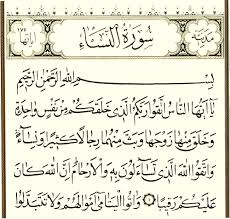 مدنية سُورَةُ النِّسَاءِ آياتها
بِسْمِ اللَّهِ الرَّحْمَٰنِ الرَّحِيمِ
يَا أَيُّهَا النَّاسُ اتَّقُوا رَبَّكُمُ الَّذِي خَلَقَكُمْ مِنْ نَفْسٍ وَاحِدَةٍ
وَخَلَقَ مِنْهَا زَوْجَهَا وَبَثَّ مِنْهُمَا رِجَالًا كَثِيرًا وَنِسَاءً
وَاتَّقُوا اللَّهَ الَّذِي تَسَاءَلُونَ بِهِ وَالْأَرْحَامَ إِنَّ اللَّهَ كَانَ
عَلَيْكُمْ رَقِيبًا ۝ وَآتُوا الْيَتَامَىٰ أَمْوَالَهُمْ وَلَا تَتَبَدَّلُوا